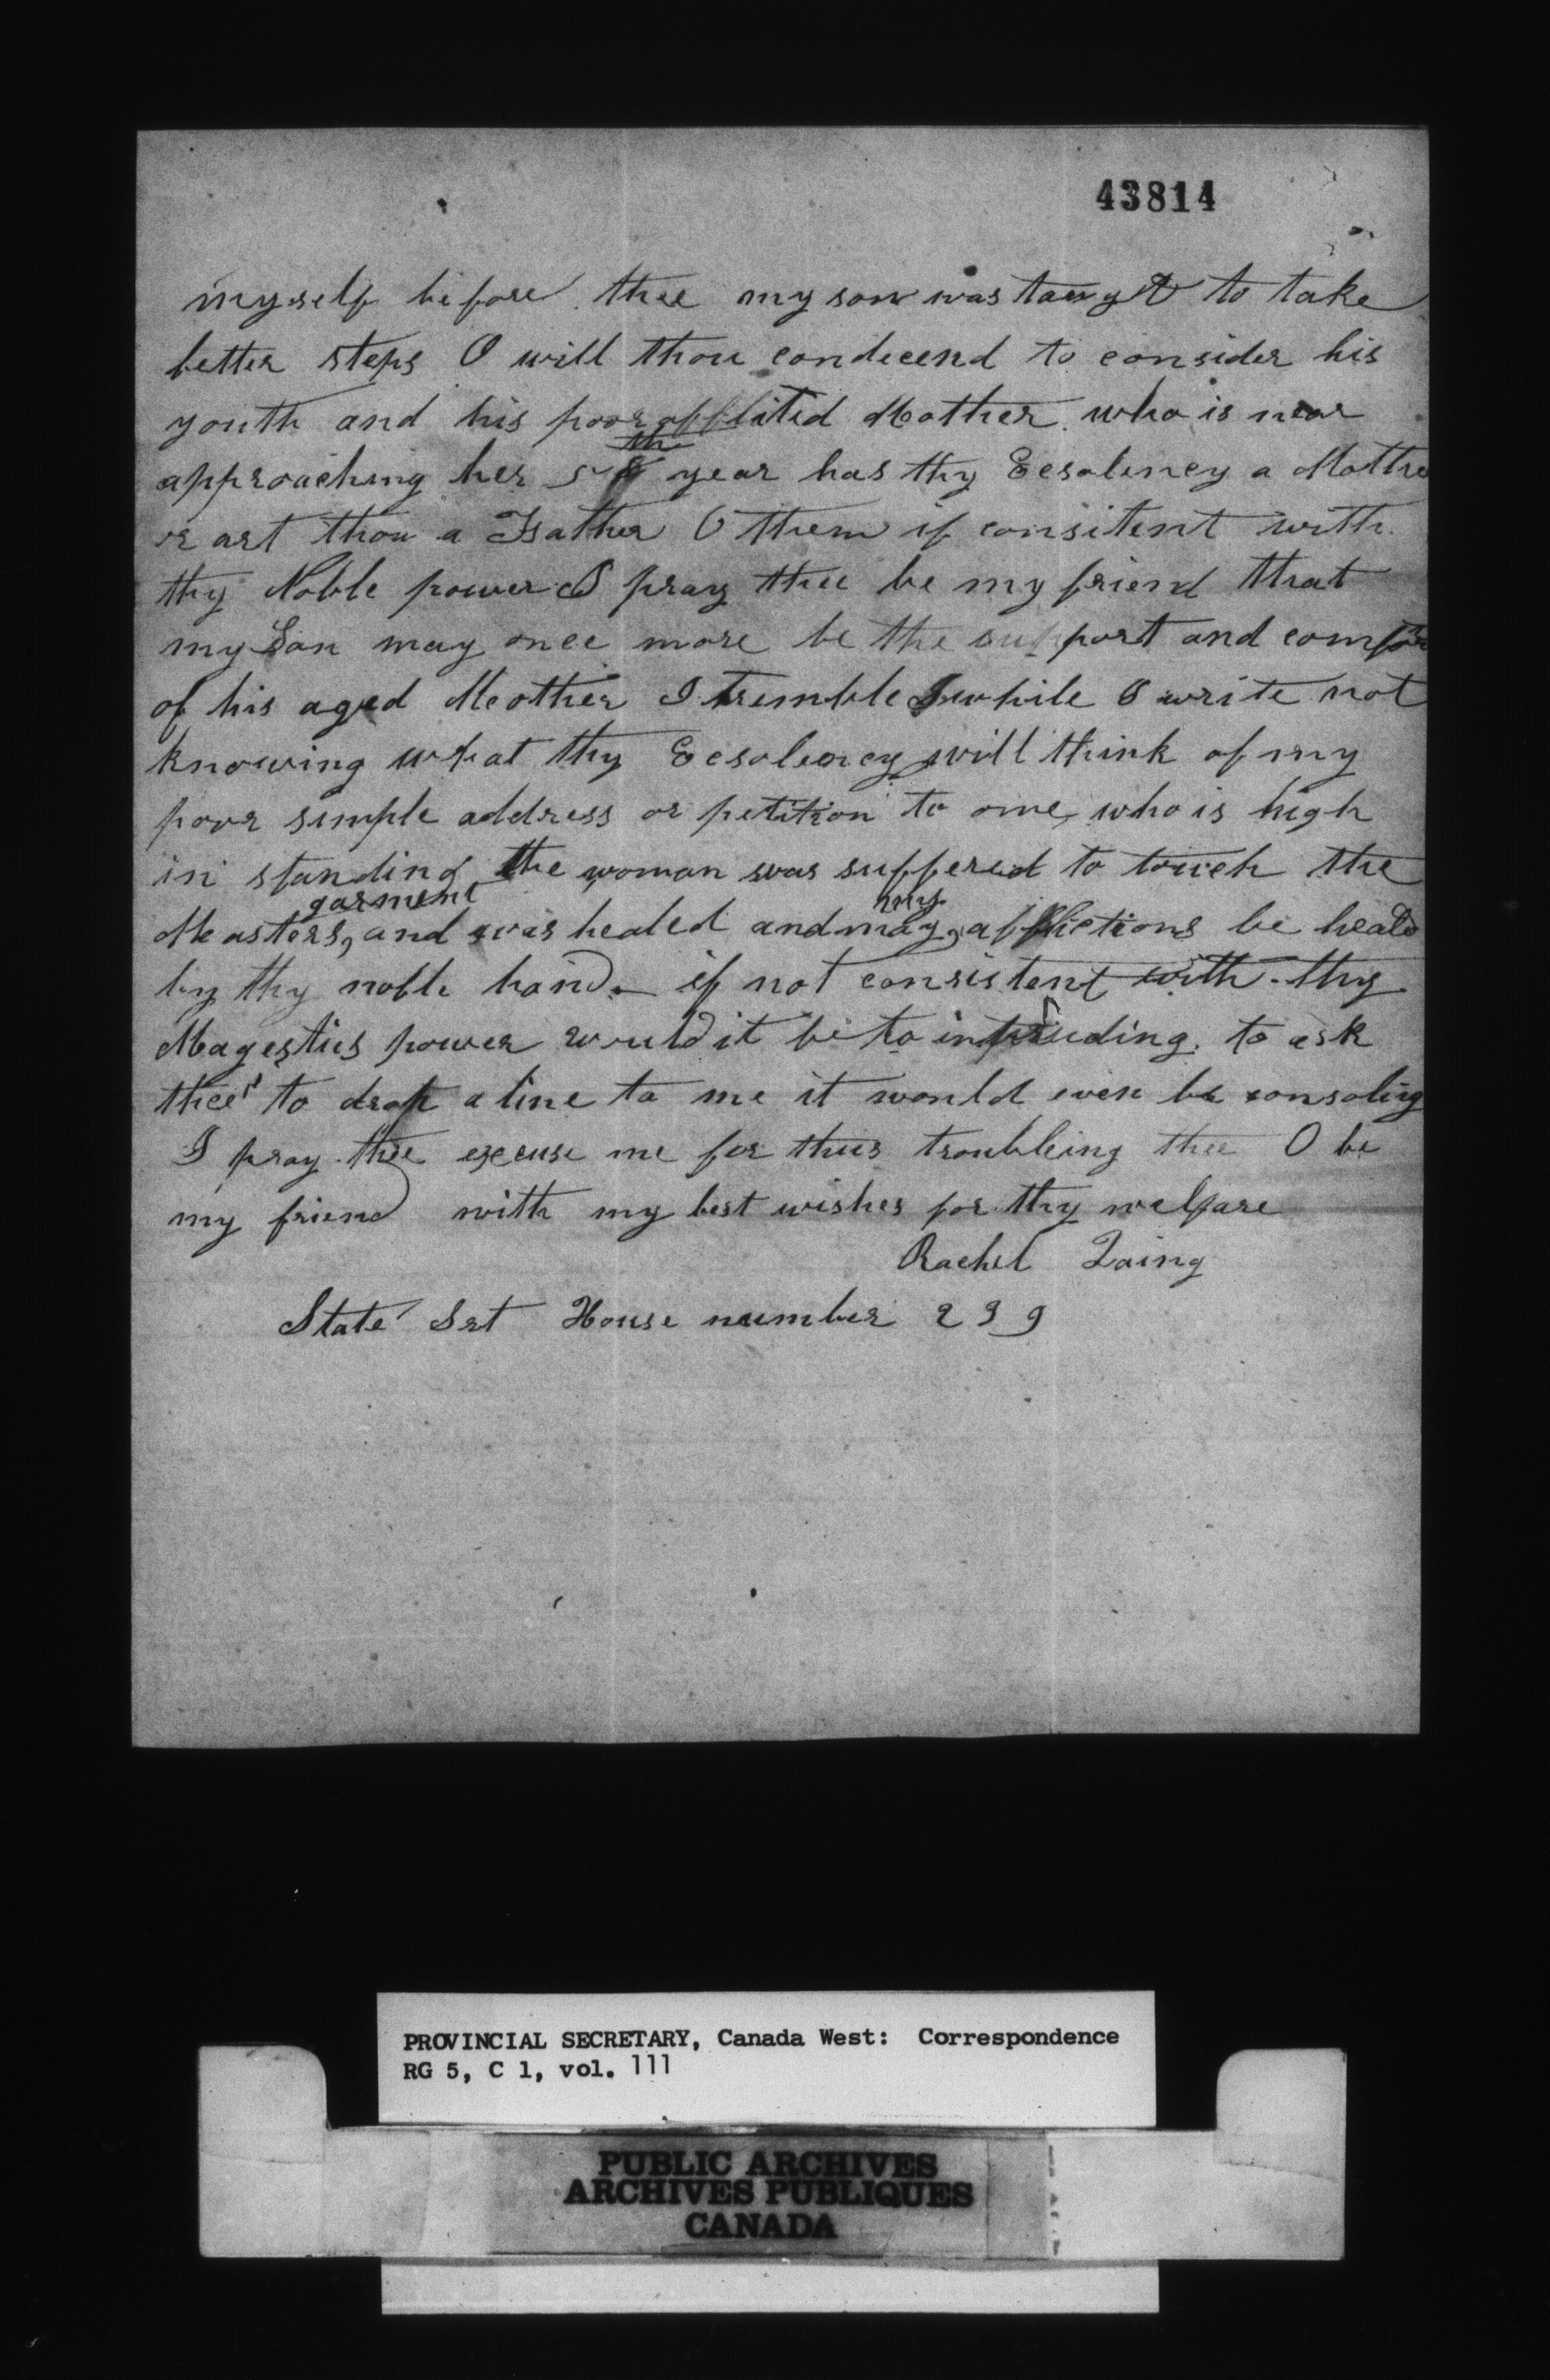 43814
myself before thee my son was taught to take
better steps O will thou condecend to consider his
youth and his poor afflited Mother who is near
approaching her 58 th year has thy Eesolency a Mothe
or art thou a Father O them if consitent with
thy Noble power I pray thee be my friend that
my Son may once more be the support and comfor
of his aged Meother I tremble while I write not
knowing what thy Eesolency will think of my
poor simple address or petition to one who is high
in standing the woman was suffered to touch the
Measters, garment and was healed and may, my afflictions be heald
by thy noble hand if not consistent with thy
Magesties power would it be to intruding to ask
thee to drop a line to me it would even be consoling
I pray thee excuse me for thus troubleing thee O be
my friend with my best wishes for thy welfare
Rachel Laing
State Srt House number 239
PROVINCIAL SECRETARY, Canada West: Correspondence
RG 5, C 1, vol. 111
PUBLIC ARCHIVES
ARCHIVES PUBLIQUES
CANADA